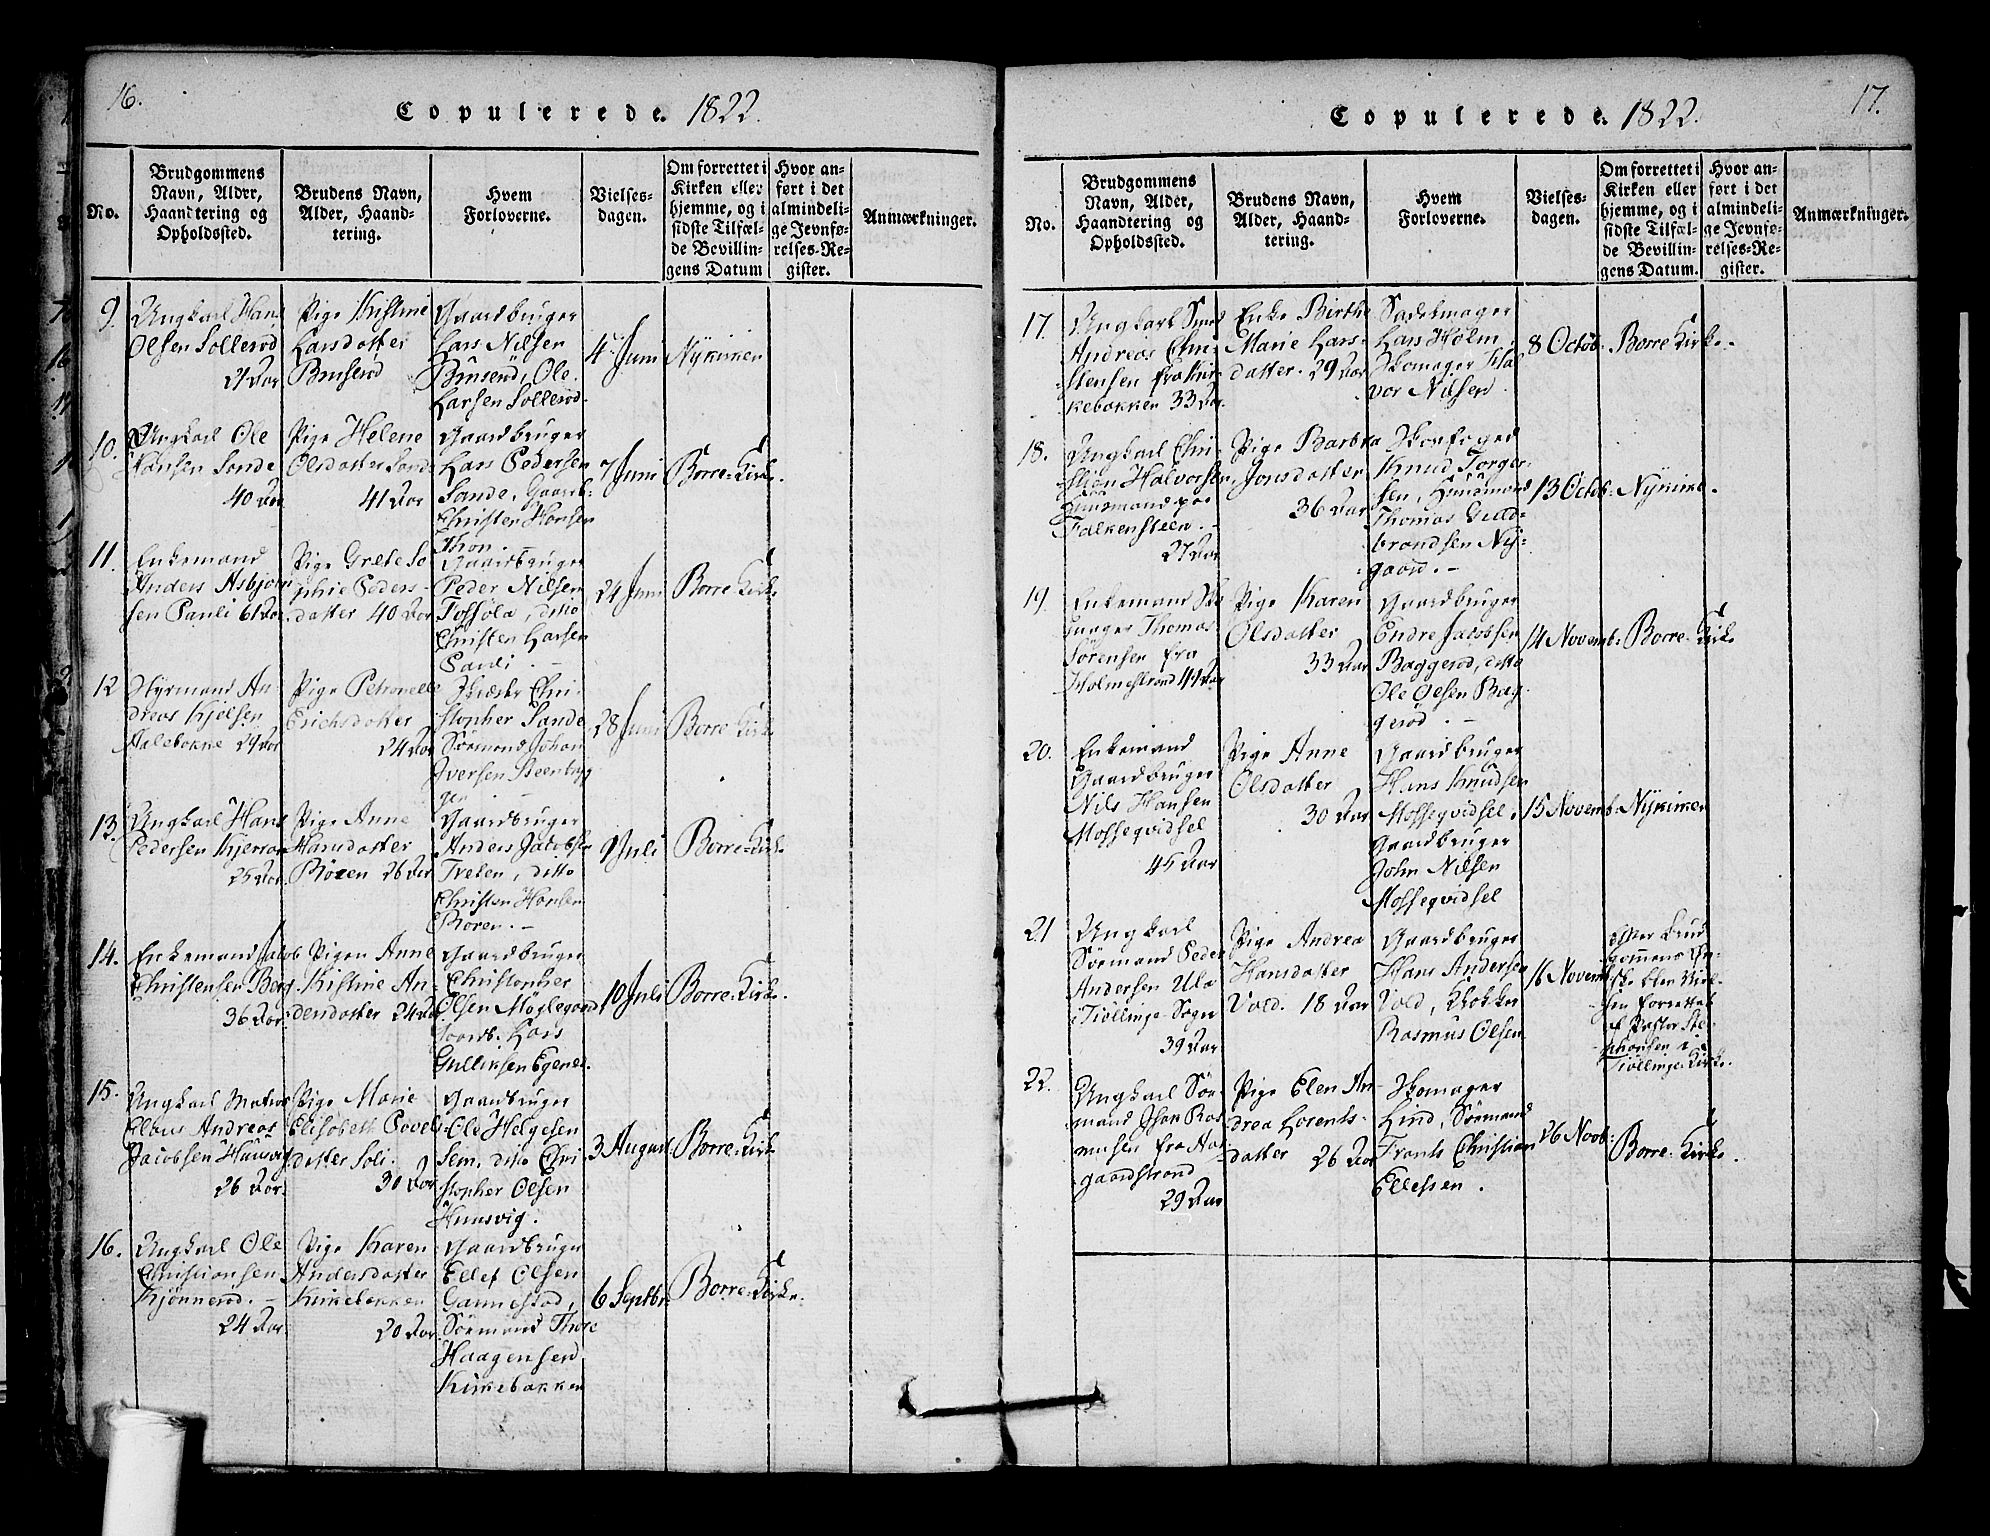 16.
Copulerede. 1822.
No.
Brudgommens
Navn, Alder,
Haandtering og
Opholdssted.
Brudens Navn,
Alder, Haand-
tering.
Hvem
Forloverne.
Vielses-
dagen.
Om forrettet i
Kirken eller
hjemme, og i
sidste Tilfæl-
de Bevillin-
gens Datum
Hvor an-
ført i det
almindeli-
ge Jevnfø-
relses-Re-
gister.
Anmærkninger.
9.
Ungkarl Hans
Olsen Sollerød
21 Aar
Pige Kistine
Larsdatter
Bruserød
Gaardbruger
Lars Nilsen
Bruserød, Ole
Larsen Sollerød.
4 Juni
Nykirken
10.
Ungkarl Ole
Hansen Sande
40 Aar
Pige Helene
Olsdatter Sande
41 Aar
Gaardbruger
Lars Pedersen
Sande, Gaardb.
Christen Hansen
Thon.
7 Juni
Borre-Kirke.
11.
Enkemand
Anders Asbjørn
sen Pauli 61 Aar
Pige Grete So
phie Peders-
datter 40 Aar
Gaardbruger
Peder Nilsen
Fossola, ditto
Christen Larsen
Pauli. -
24 Juni
Borre Kirke
12
Styrmand An
dreas Kjelsen
29 Aar
Pige Petronelle
Erichsdatter
24 Aar
Chri-
stopher Sande
Sørmand Johan
Iversen Steenbryg
gen -
28 Juni
Borre-Kirke
13.
Ungkarl Hans
Pedersen
25 Aar.
Pige Anne
Hansdatter
Røren 26 Aar
Gaardbruger
Anders Jacobsen
Treten, ditto
Christen Hansen
Røren. -
9 Juli
Borre-Kirke
14.
Enkemand Jacob
Christensen Berg
36 Aar
Pigen Anne
Kistine An-
dersdatter 24 Aar
Gaardbruger
Christopher
Olsen Møglegaard
Gaardb. Lars
Gulliksen Egenes.
10 Juli
Borre-Kirke.
15.
Ungkarl Matias
Elaus Andreas
Jacobsen Hunsvig
26 Aar.
Pige Marie
Elisabeth Povels
datter Soli.
30 Aar
Gaardbruger
Ole Helgesen
Sem, ditto Chri
stopher Olsen
Hunsvig.
3 August
Borre-Kirke
16.
Ungkarl Ole
Christiansen
Kjønnerød. -
24 Aar.
Pige Karen
Andersdatter
Kirkebakken
20 Aar.
Gaardbruger
Ellef Olsen
Gannestad,
Sørmand Thore
Haagensen
Kirkebakken
6 Septbr.
Borre-Kirke.
17.
Copulerede. 1822.
No.
Brudgommens
Navn, Alder,
Haandtering og
Opholdssted.
Brudens Navn,
Alder, Haand-
tering.
Hvem
Forloverne.
Vielses-
dagen.
Om forrettet i
Kirken eller
hjemme, og i
sidste Tilfæl-
de Bevillin-
gens Datum.
Hvor an-
ført i det
almindeli-
ge Jevnfø-
relses-Re-
gister.
Anmærkninger.
17.
Ungkarl Smed
Andreas Chri-
stensen fra Kir-
kebakken 33 Aar.
Enke Birthe
Marie Lars-
datter. 29 Aar
Sadelmager
Lars Holm.
Skomager Hal
vor Nilsen.
8 Octob.
Borre Kirke.
18.
Ungkarl Chri-
stian Halvorsen
Huusmand paa
Falkensteen. -
27 Aar
Pige Barbra
Jonsdatter
36 Aar
Skovfoged
Knud Torger-
sen, Huusmand
Thomas Guld-
brandsen Ny-
gaard. -
13 Octob.
Nykirke.
19.
Enkemand Sko
mager Thomas
Sørensen fra
Holmestrand 44 Aar
Pige Karen
Olsdatter
33 Aar
Gaardbruger
Endre Jacobsen
Baggerød, ditto
Ole Olsen Bag-
gerød. -
14 Novemb.
Borre-Kirke
20.
Enkemand
Gaardbruger
Nils Hansen
Mosseqvidsel
45 Aar
Pige Anne
Olsdatter
30 Aar
Gaardbruger
Hans Knudsen
Mosseqvidsel,
Gaardbruger
John Nilsen
Mosseqvidsel
15 Novemb.
Nykirken
21
Ungkarl
Sørmand Peder
Andersen Ula
i Tiøllinge-Sogn
39 Aar
Pige Andrea
Hansdatter
Vold. 18 Aar
Gaardbruger
Hans Andersen
Vold, Klokker
Rasmus Olsen
16 Novemb.
Efter Brud
gommens Øn-
ske blev Viel-
sen forrettet
af Pastor Ste-
phansen i
Tiøllinge-Kirke.
22.
Ungkarl Sør-
mand Isak Ras
musen fra Aas-
gaardstrand
29 Aar
Pige Elen An-
drea Lorents-
datter 26 Aar
Skomager
Lind, Sørmand
Frants Christian
Ellefsen.
26 Novb.
Borre-Kirke.